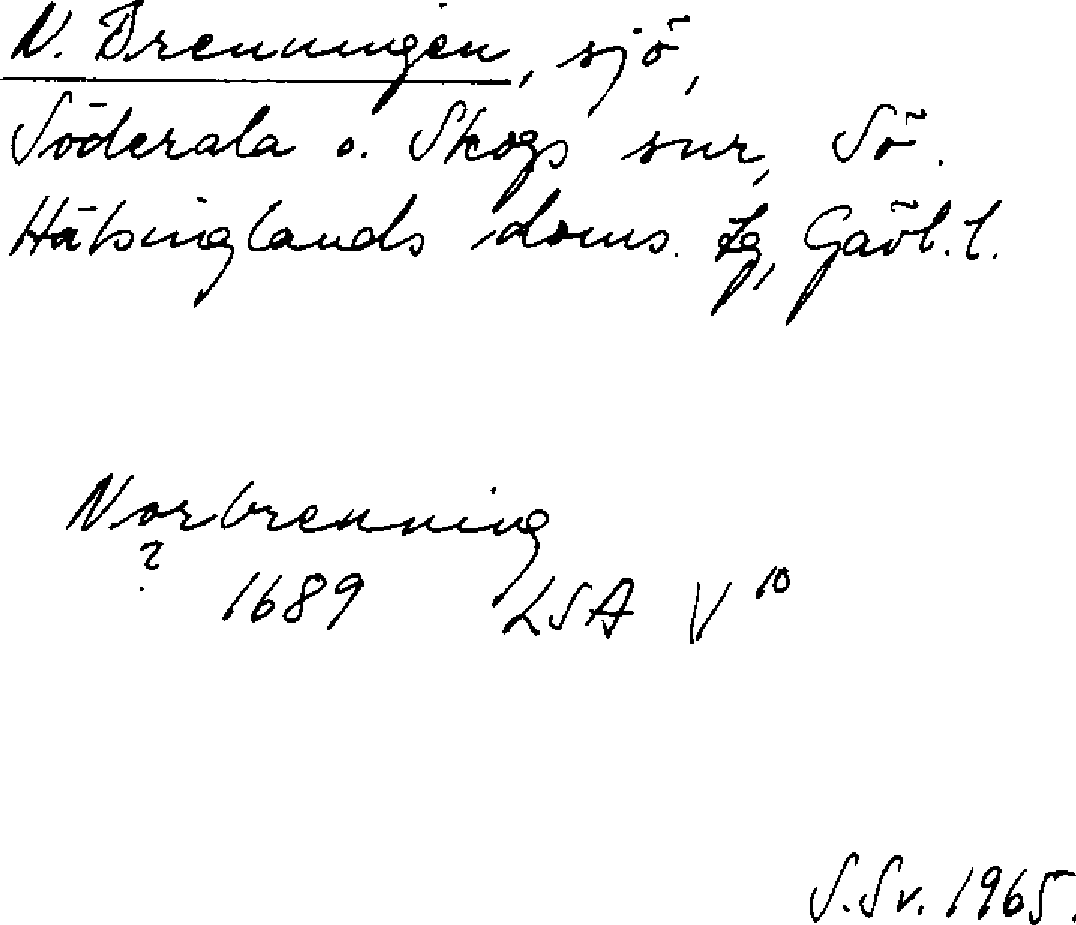 N. Brenningen, sjö,
Söderala o. Skogs snr, Sö.
Hälsinglands doms. tg, Gävl. l.
Norbrenning
?
1689 LSA V 10
S.Sv. 1965.